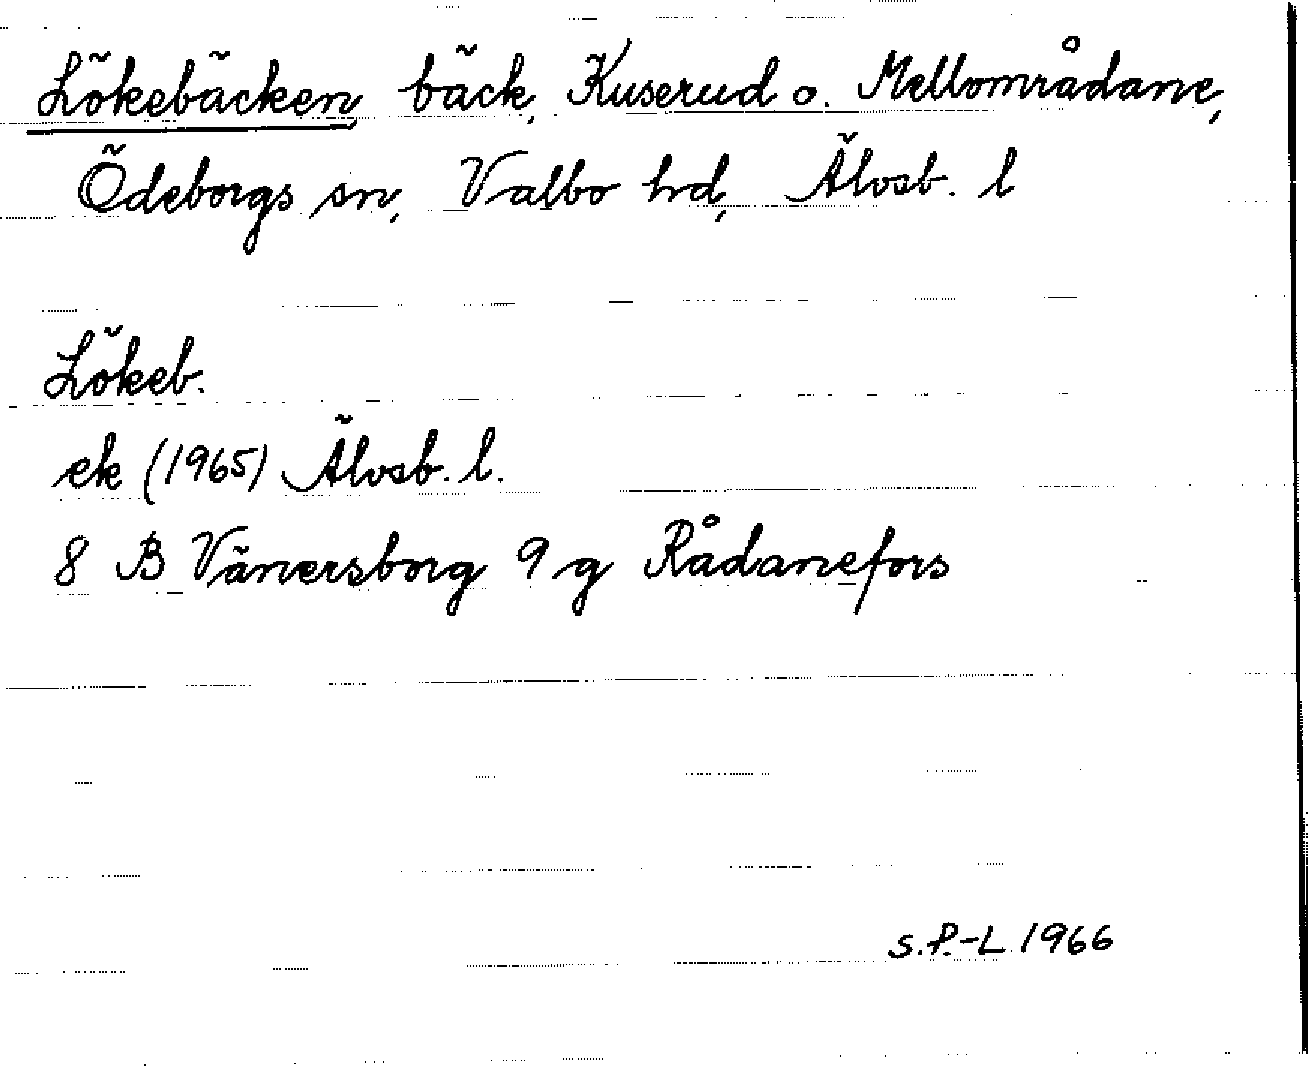 Lökebäcken bäck, Kuserud o. Mellområdane,
Ödeborgs sn, Valbo hrd, Älvsb. l
Lökeb.
ek (1965) Älvsb. l.
8 B Vänersborg 9 g Rådanefors
S.P.-L 1966